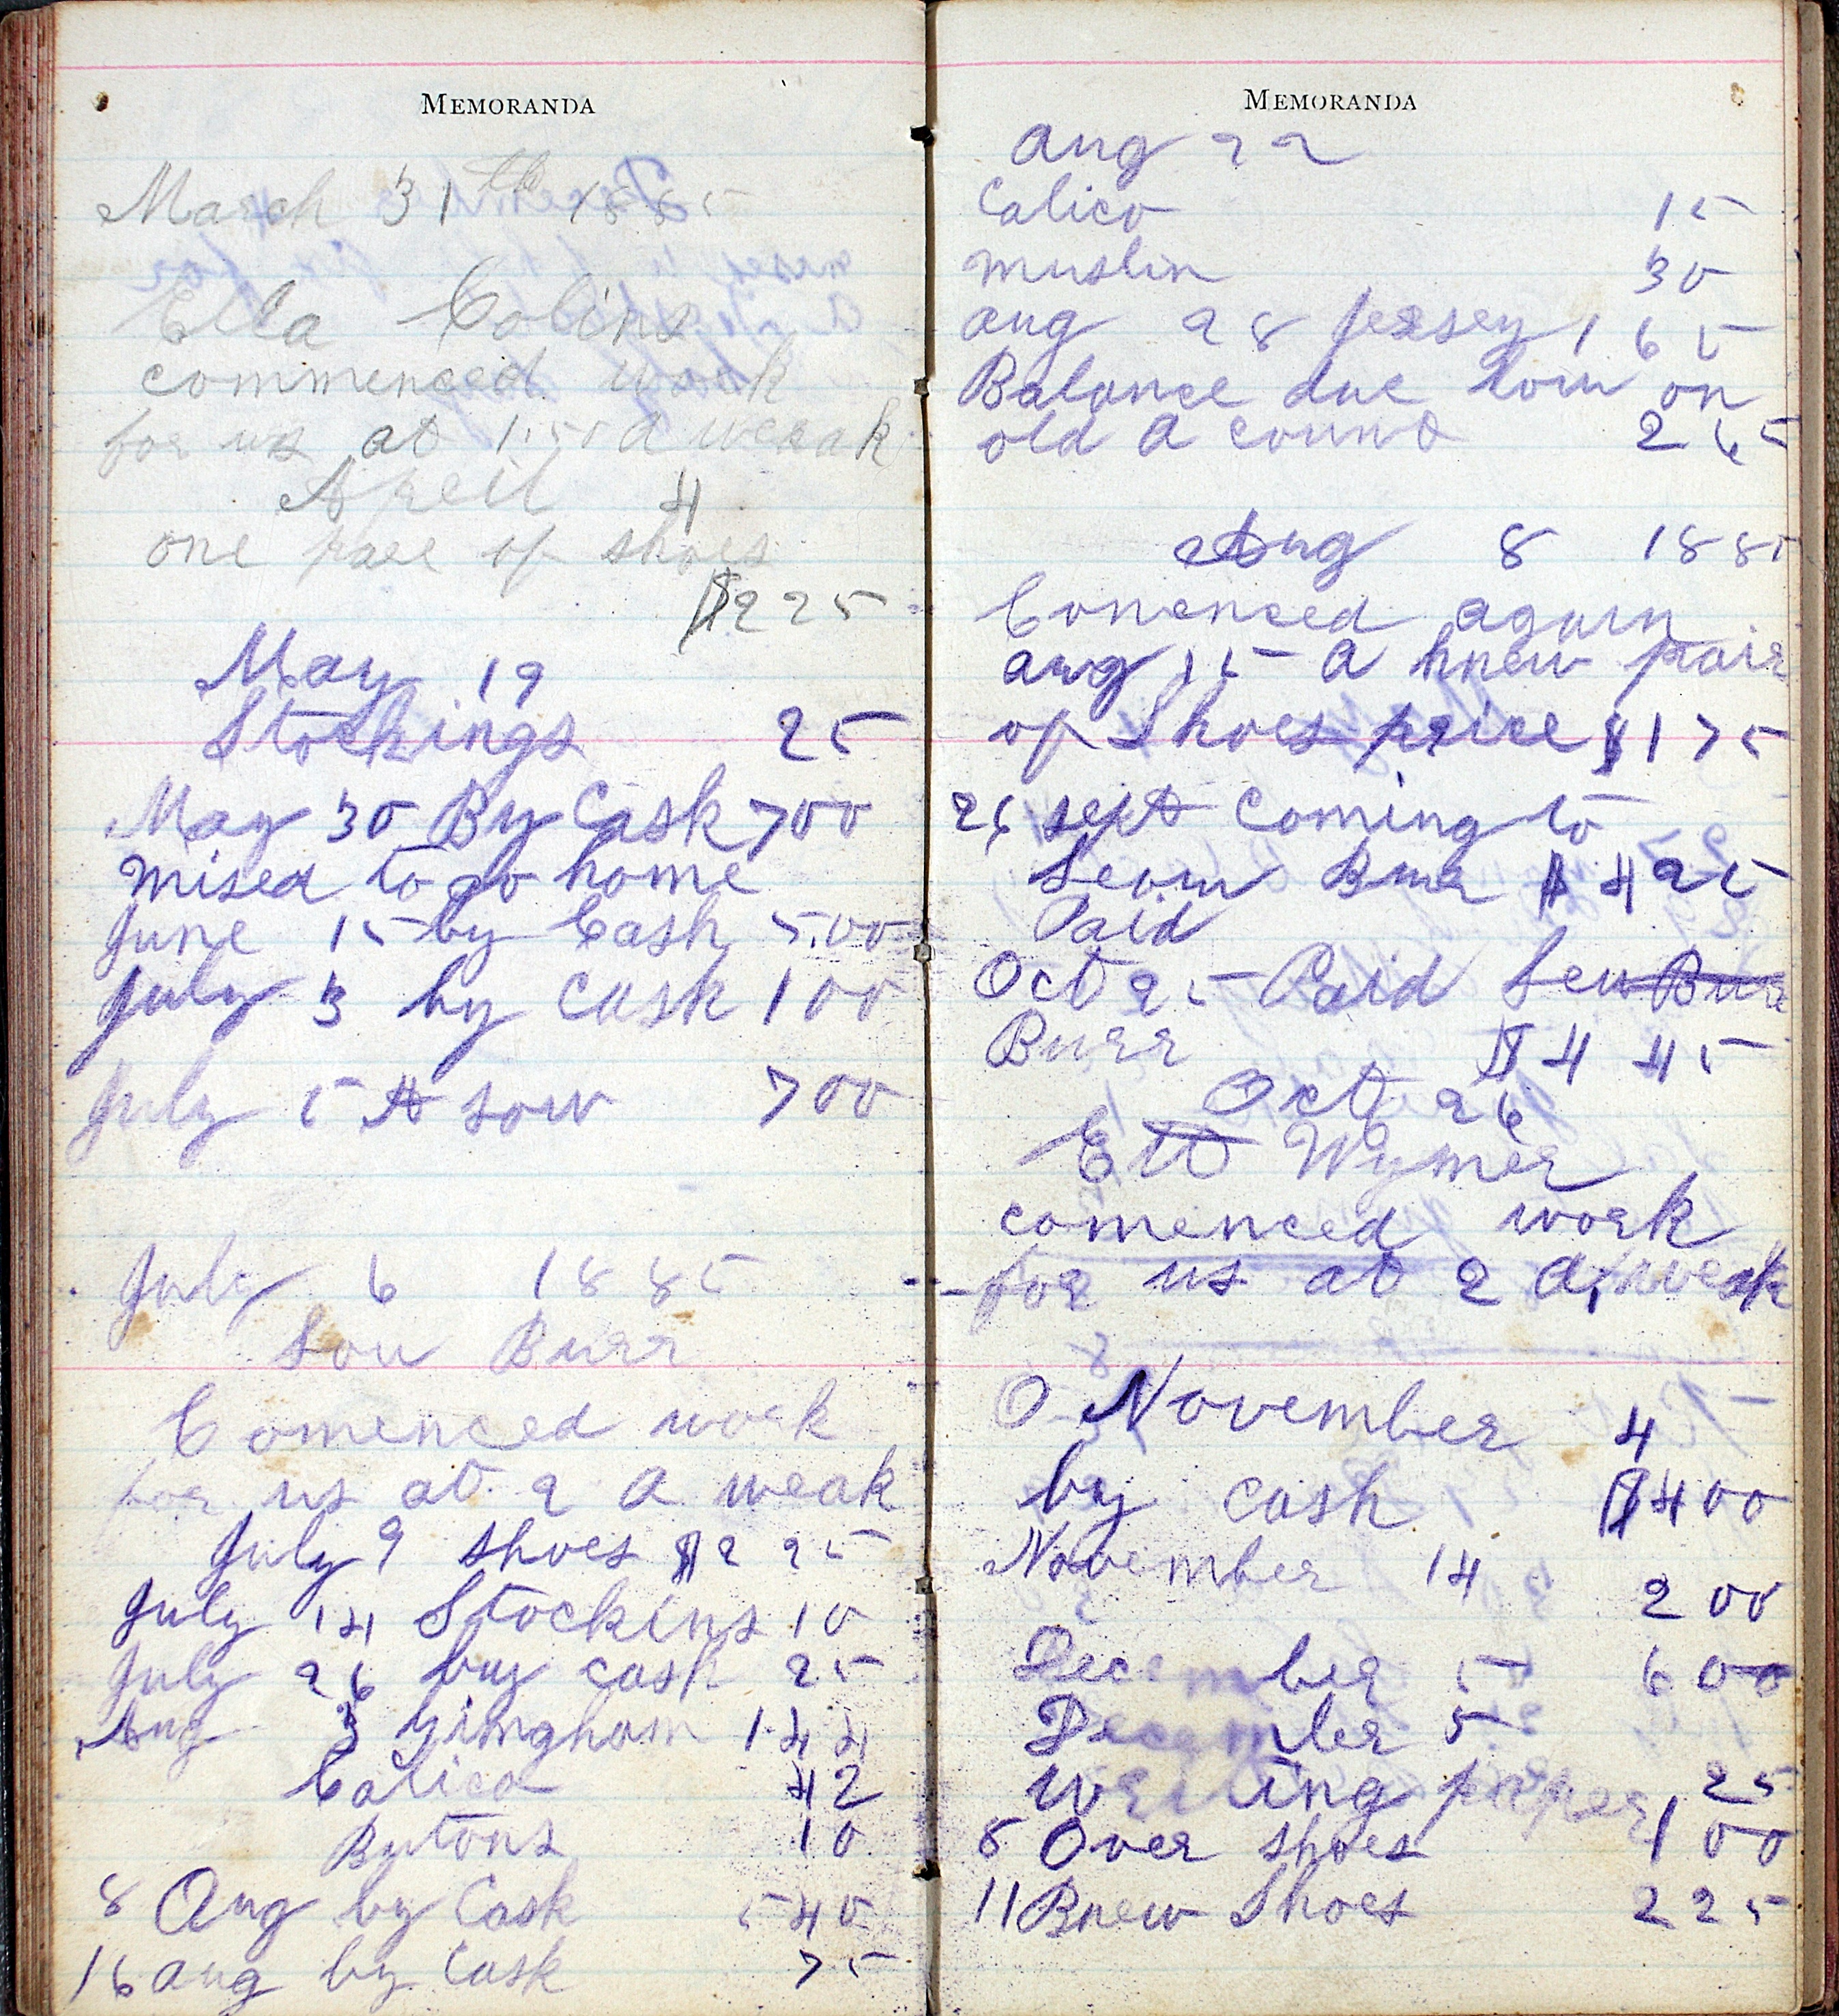 MEMORANDA
March 31th 1885
Ella Colins
commenced work
for us at 1.50 a weeak
Apreil 4
one paee of shoes
$2 25
May 19
Stockings 25
May 30 By Cash 7 00
mised to go home
June 15 by Cash 5.00
July 3 by cash 1 00
July 5 A sow 7 00
July 6 1885
Lou Burr
Comenced work
for us at 2 a weak
July 9 shoes $2 25
July 14 Stockins 10
July 26 buy cash 25
Aug 3 gingham 1.44
Calico 42
Butons 10
8 Aug by Cash 5 40
16 aug by Cash 75
MEMORANDA
aug 22
Calico 15
muslin 30
aug 28 jersey 1 65
Balance due Low on
old a count 2 65
Aug 8 1885
Comenced again
aug 15 a knew pair
of Shoes price $1 75
26 sept Coming to
$4 25
Paid
Oct 25 Paid Lew Bur
Burr $4 45
Oct 26
Ett Wymer
comenced work
for us at 2 a weak
O November 4
by cash $4 00
November 14
2 00
December 5 6 00
December 5
Writing paper 25
8 Over shoes 1 00
11 Bnew Shoes 2 25